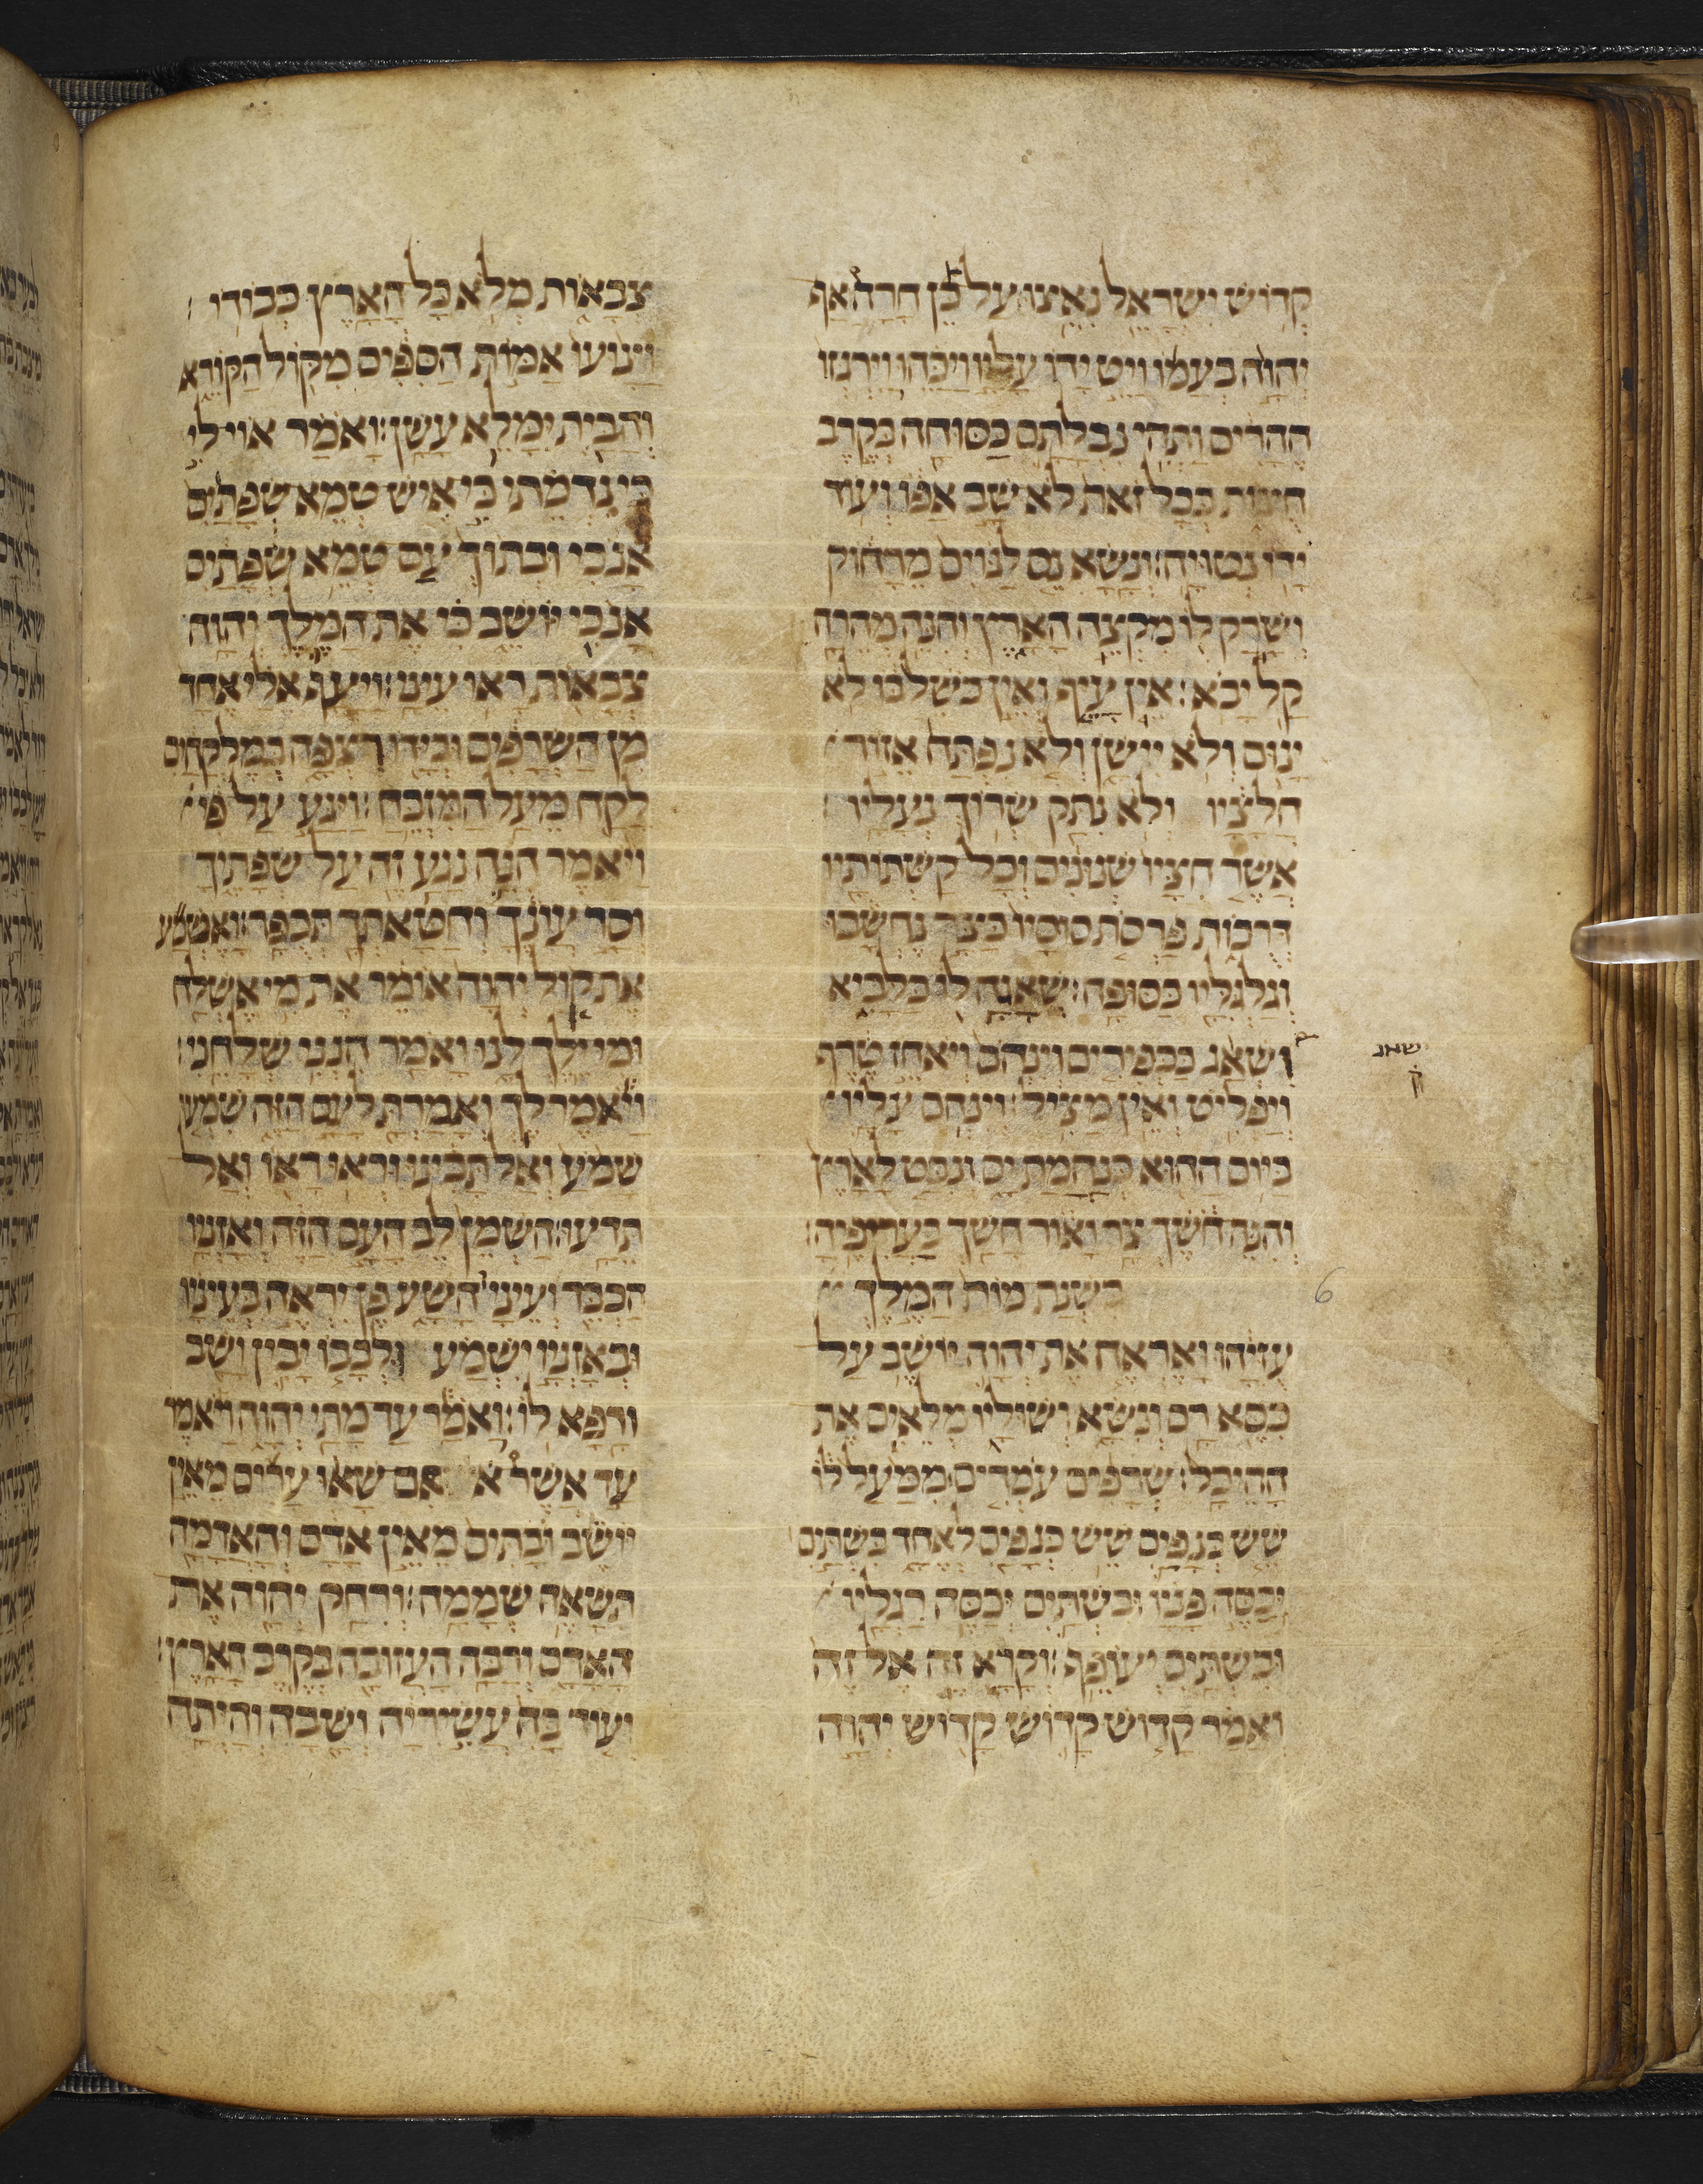 קדוש ישראל נאצו על כן חרה אף
יהוה בעמו ויט ידו עליו ויכהו וירגזו
ההרים ותהי נבלתם כסוחה בקרב
חוצות בכל זאת לא שב אפו ועוד
ידו נטויה: ונשא נס לגוים מרחוק
ושרק לו מקצה הארץ והנה מהרה
קל יבא: אין עיף ואין כשל בו לא
ינום ולא יישן ולא נפתח אזור
חלציו ולא נתק שרוך נעליו:
אשר חציו שנונים וכל קשתותיו
דרכות פרסת סוסיו כצר נחשבו
וגלגליו כסופה: שאגה לו כלביא
ושאג ככפירים וינהם ויאחז טרף
שאג
ק
ויפליט ואין מציל: וינהם עליו
ביום ההוא כנהמת ים ונבט לארץ
והנה חשך צר ואור חשך בעריפיה:
6
בשנת מות המלך
עזיהו ואראה את יהוה יושב על
כסא רם ונשא ושוליו מלאים את
ההיכל: שרפים עמדים ממעל לו
שש כנפים שש כנפים לאחד בשתים
יכסה פניו ובשתים יכסה רגליו
ובשתים יעופף: וקרא זה אל זה
ואמר קדוש קדוש קדוש יהוה
צבאות מלא כל הארץ כבודו:
וינועו אמות הספים מקול הקורא
והבית ימלא עשן: ואמר אוי לי
כי נדמתי כי איש טמא שפתים
אנכי ובתוך עם טמא שפתים
אנכי יושב כי את המלך יהוה
צבאות ראו עיני: ויעף אלי אחד
מן השרפים ובידו רצפה במלקחים
לקח מעל המזבח: ויגע על פי
ויאמר הנה נגע זה על שפתיך
וסר עונך וחטאתך תכפר: ואשמע
את קול יהוה אומר את מי אשלח
ומי ילך לנו ואמר הנני שלחני:
ויאמר לך ואמרת לעם הזה שמעו
שמע ואל תבינו וראו ראו ואל
תדעו: השמן לב העם הזה ואזניו
הכבד ועיניו השע פן יראה בעיניו
ובאזניו ישמע ולבבו יבין ושב
ורפא לו: ואמר עד מתי יהוה ויאמר
עד אשר אם שאו ערים מאין
יושב ובתים מאין אדם והאדמה
תשאה שממה: ורחק יהוה את
האדם ורבה העזובה בקרב הארץ:
ועוד בה עשיריה ושבה והיתה